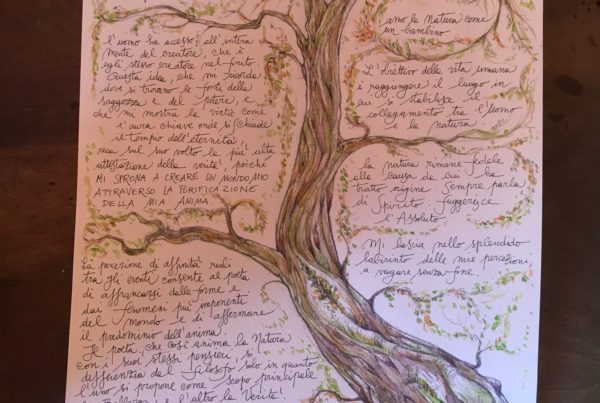 l'uomo ha accesso all'intera
mente del creatore, che è
egli stesso creatore nel finito.
Questa idea, che mi ricorda
dove si trovano le fonti della
saggezza e del potere, e
che mi mostra la virtù come
l'aurea chiave onde si schiude
il tempio dell'eternità!
reca sul suo volto la più alta
attestazione della verità poiché
MI SPRONA A CREARE UN MONDO MIO
ATTRAVERSO LA PURIFICAZIONE
DELLA MIA ANIMA
La percezione di affinità reali
tra gli eventi consente al poeta
di affrancarsi dalle forme e
dai fenomeni più imponenti
del mondo e di affermare
il predominio dell'anima.
Il poeta, che così anima la Natura
con i suoi stessi pensieri, si
differenzia dal filosofo solo in quanto
l'uno si propone come scopo principale
la Bellezza l'altro la Verità!
amo la natura come
un bambino
L'obiettivo della vita umana
è raggiungere il luogo in
cui si stabilisce il
collegamento tra l'Uomo
e la natura.
la natura rimane fedele
alla causa da cui ha
tratto origine. Sempre parla
di Spirito. Suggerisce
l'Assoluto.
Mi lascia nello splendido
labirinto delle mie percezioni,
a vagare senza fine.